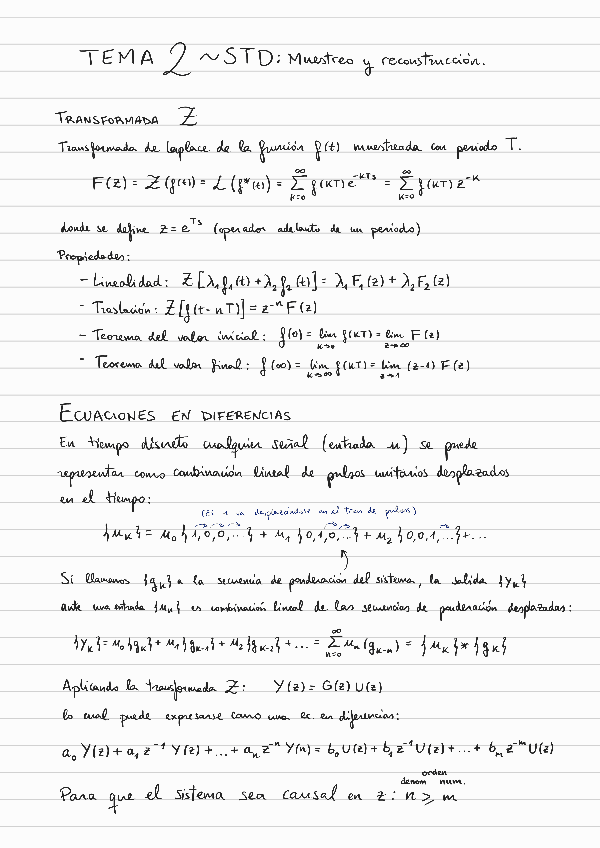 TEMA 2 ~ STD: Muestreo y reconstrucción.
TRANSFORMADA Z
Transformada de Laplace de la función f(t) muestreada con periodo T.
F(z) = Z(f(t)) = L(f*(t)) = ∑_{k=0}^{∞} f(kT) e^{-kTs} = ∑_{k=0}^{∞} f(kT) z^{-k}
donde se define z = e^{Ts} (operador adelanto de un periodo)
Propiedades:
- Linealidad: Z[λ₁f₁(t) + λ₂f₂(t)] = λ₁F₁(z) + λ₂F₂(z)
- Traslación: Z[f(t-nT)] = z^{-n} F(z)
- Teorema del valor inicial: f(0) = lim_{k→0} f(kT) = lim_{z→∞} F(z)
- Teorema del valor final: f(∞) = lim_{k→∞} f(kT) = lim_{z→1} (z-1) F(z)
ECUACIONES EN DIFERENCIAS
En tiempo discreto cualquier señal (entrada u) se puede
representar como combinación lineal de pulsos unitarios desplazados
en el tiempo:
(El 1 va desplazándose en el tren de pulsos)
{u_k} = u₀{1,0,0,...} + u₁{0,1,0,...} + u₂{0,0,1,...} + ...
Si llamamos {g_k} a la secuencia de ponderación del sistema, la salida {y_k}
ante una entrada {u_n} es combinación lineal de las secuencias de ponderación desplazadas:
{y_k} = u₀{g_k} + u₁{g_{k-1}} + u₂{g_{k-2}} + ... = ∑_{n=0}^{∞} u_n(g_{k-n}) = {u_k} * {g_k}
Aplicando la transformada Z: Y(z) = G(z) U(z)
lo cual puede expresarse como una ec. en diferencias:
a₀ Y(z) + a₁ z^{-1} Y(z) + ... + a_n z^{-n} Y(n) = b₀ U(z) + b₁ z^{-1} U(z) + ... + b_m z^{-m} U(z)
orden
denom num.
Para que el sistema sea causal en z: n ≥ m